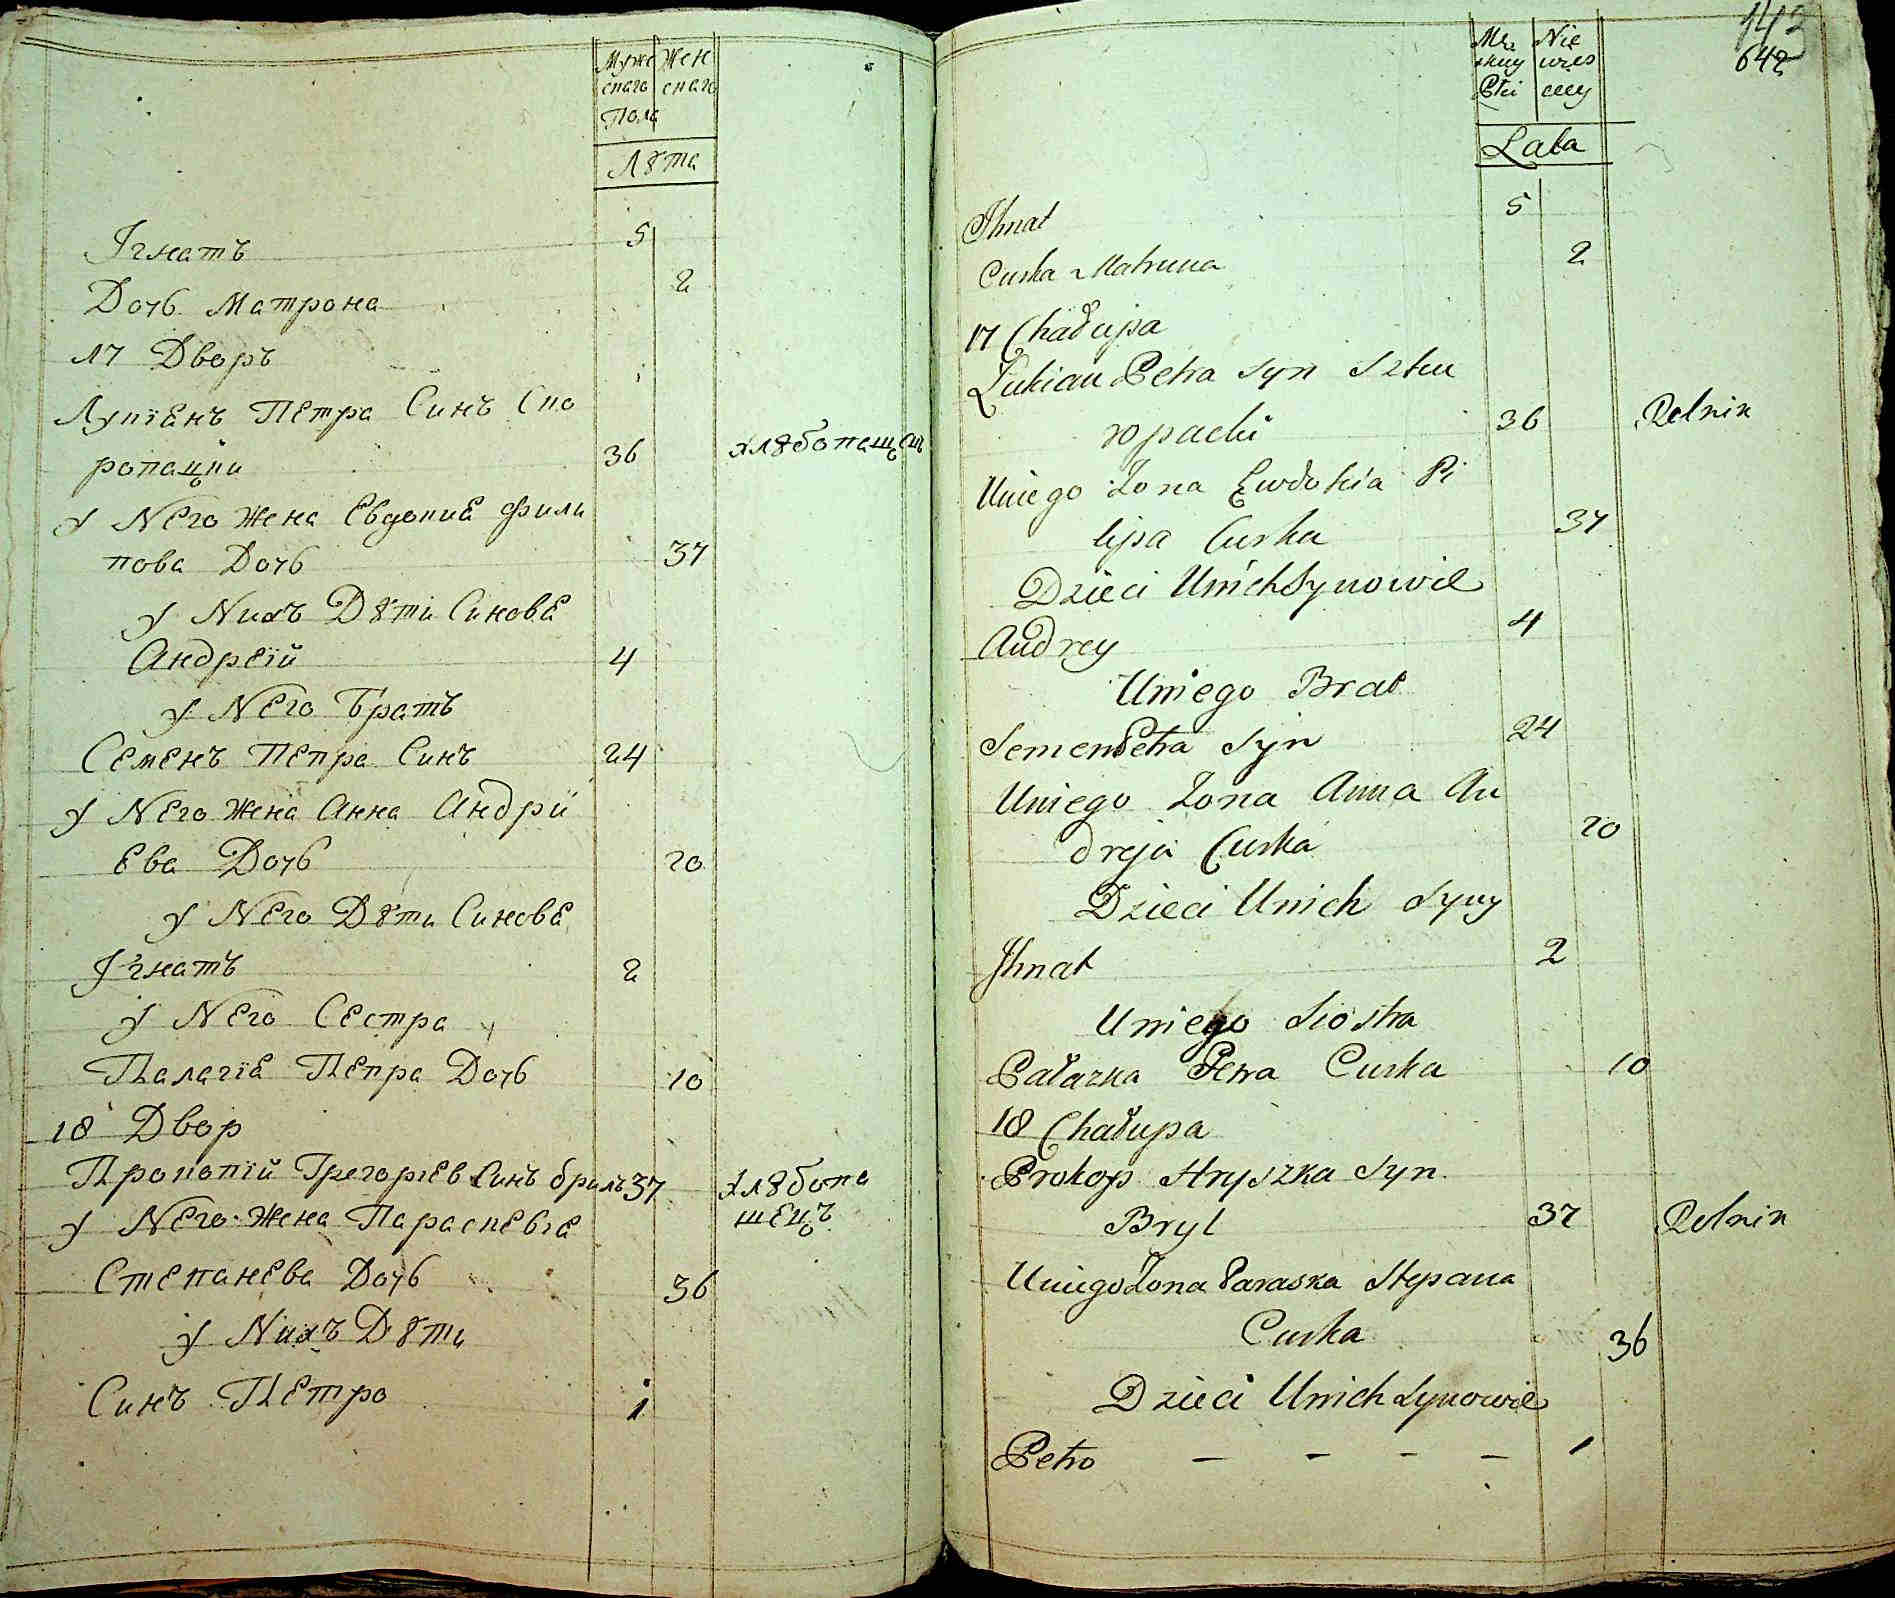 Муже Жен
скаго скаго
Пола
Лѣта
Ігнатъ 5
Дочь Матрона 2
17 Дворъ
Лукіянъ Петра Синъ Ско
ропацки 36 хлѣбопашецъ
у Него Жена Евдокиѣ Фили
пова Дочь 37
у Нихъ Дѣти Синовѣ
Андрѣй 4
у Него Братъ
Семенъ Петра Синъ 24
у Него Жена Анна Андрѣ
ева Дочь 20
у Него Дѣти Синовѣ
Ігнатъ 2
у Него Сестра
Палагіѣ Петра Дочь 10
18 Двор
Прокопій Грегорѣев Синъ брилъ 37 хлѣбопа
шецъ
у Него Жена Параскевіа
Степанѣва Дочь 36
у Нихъ Дѣти
Синъ Петро 1
642
Mę Nie
skuy wies
Płci ciey
Lata
Ihnat 5
Curka Matruna 2
17 Chałupa
Łukian Petra Syn Sztu
ropacki 36 Rolnik
Uniego Żona Ewdokia Pi
lipa Curka 37
Dzieci Unich Synowie
Andrey 4
Uniego Brat
Semen Petra Syn 24
Uniego Żona Anna An
dreja Curka 20
Dzieci Unich Syny
Ihnat 2
Uniego Siostra
Pałazka Petra Curka 10
18 Chałupa
Prokop Hryszka Syn
Bryl 37 Rolnik
Uniego Żona Paraska Stepana
Curka 36
Dzieci Unich Synowie
Petro - - - - 1